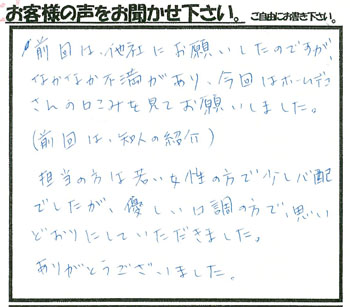 お客様の声をお聞かせ下さい。 ご自由にお書き下さい。
前回は、他社にお願いしたのですが、
なかなか不満があり、今回はホームデコ
さんの口こみを見てお願いしました。
(前回は、知人の紹介)
担当の方は若い女性の方で少し心配
でしたが、優しい口調の方で、思い
どおりにしていただきました。
ありがとうございました。